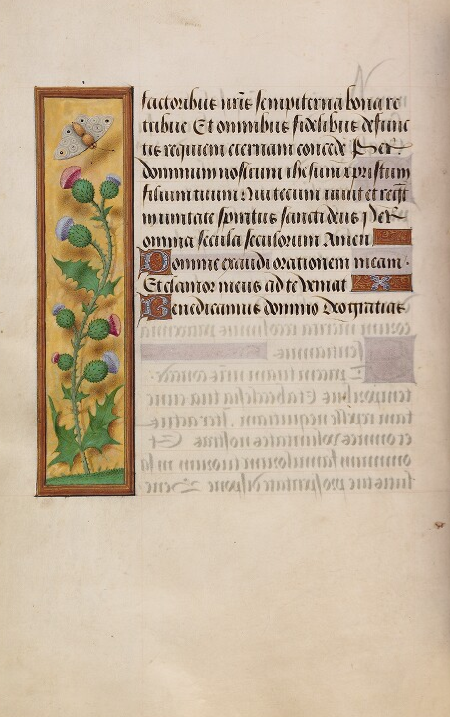 factoribus nr̄is sempiterna bona re
tribue Et omnibus fidelibus defunc
tis requiem eternam concede Per
dominum nostrum ihesum xpristum
filium tuum Qui tecum viuit et regn̄
in unitate spiritus sancti deus Per
omnia secula seculorum Amen
Domine exaudi orationem meam
Et clamor meus ad te veniat
Benedicamus domino Deo gratias